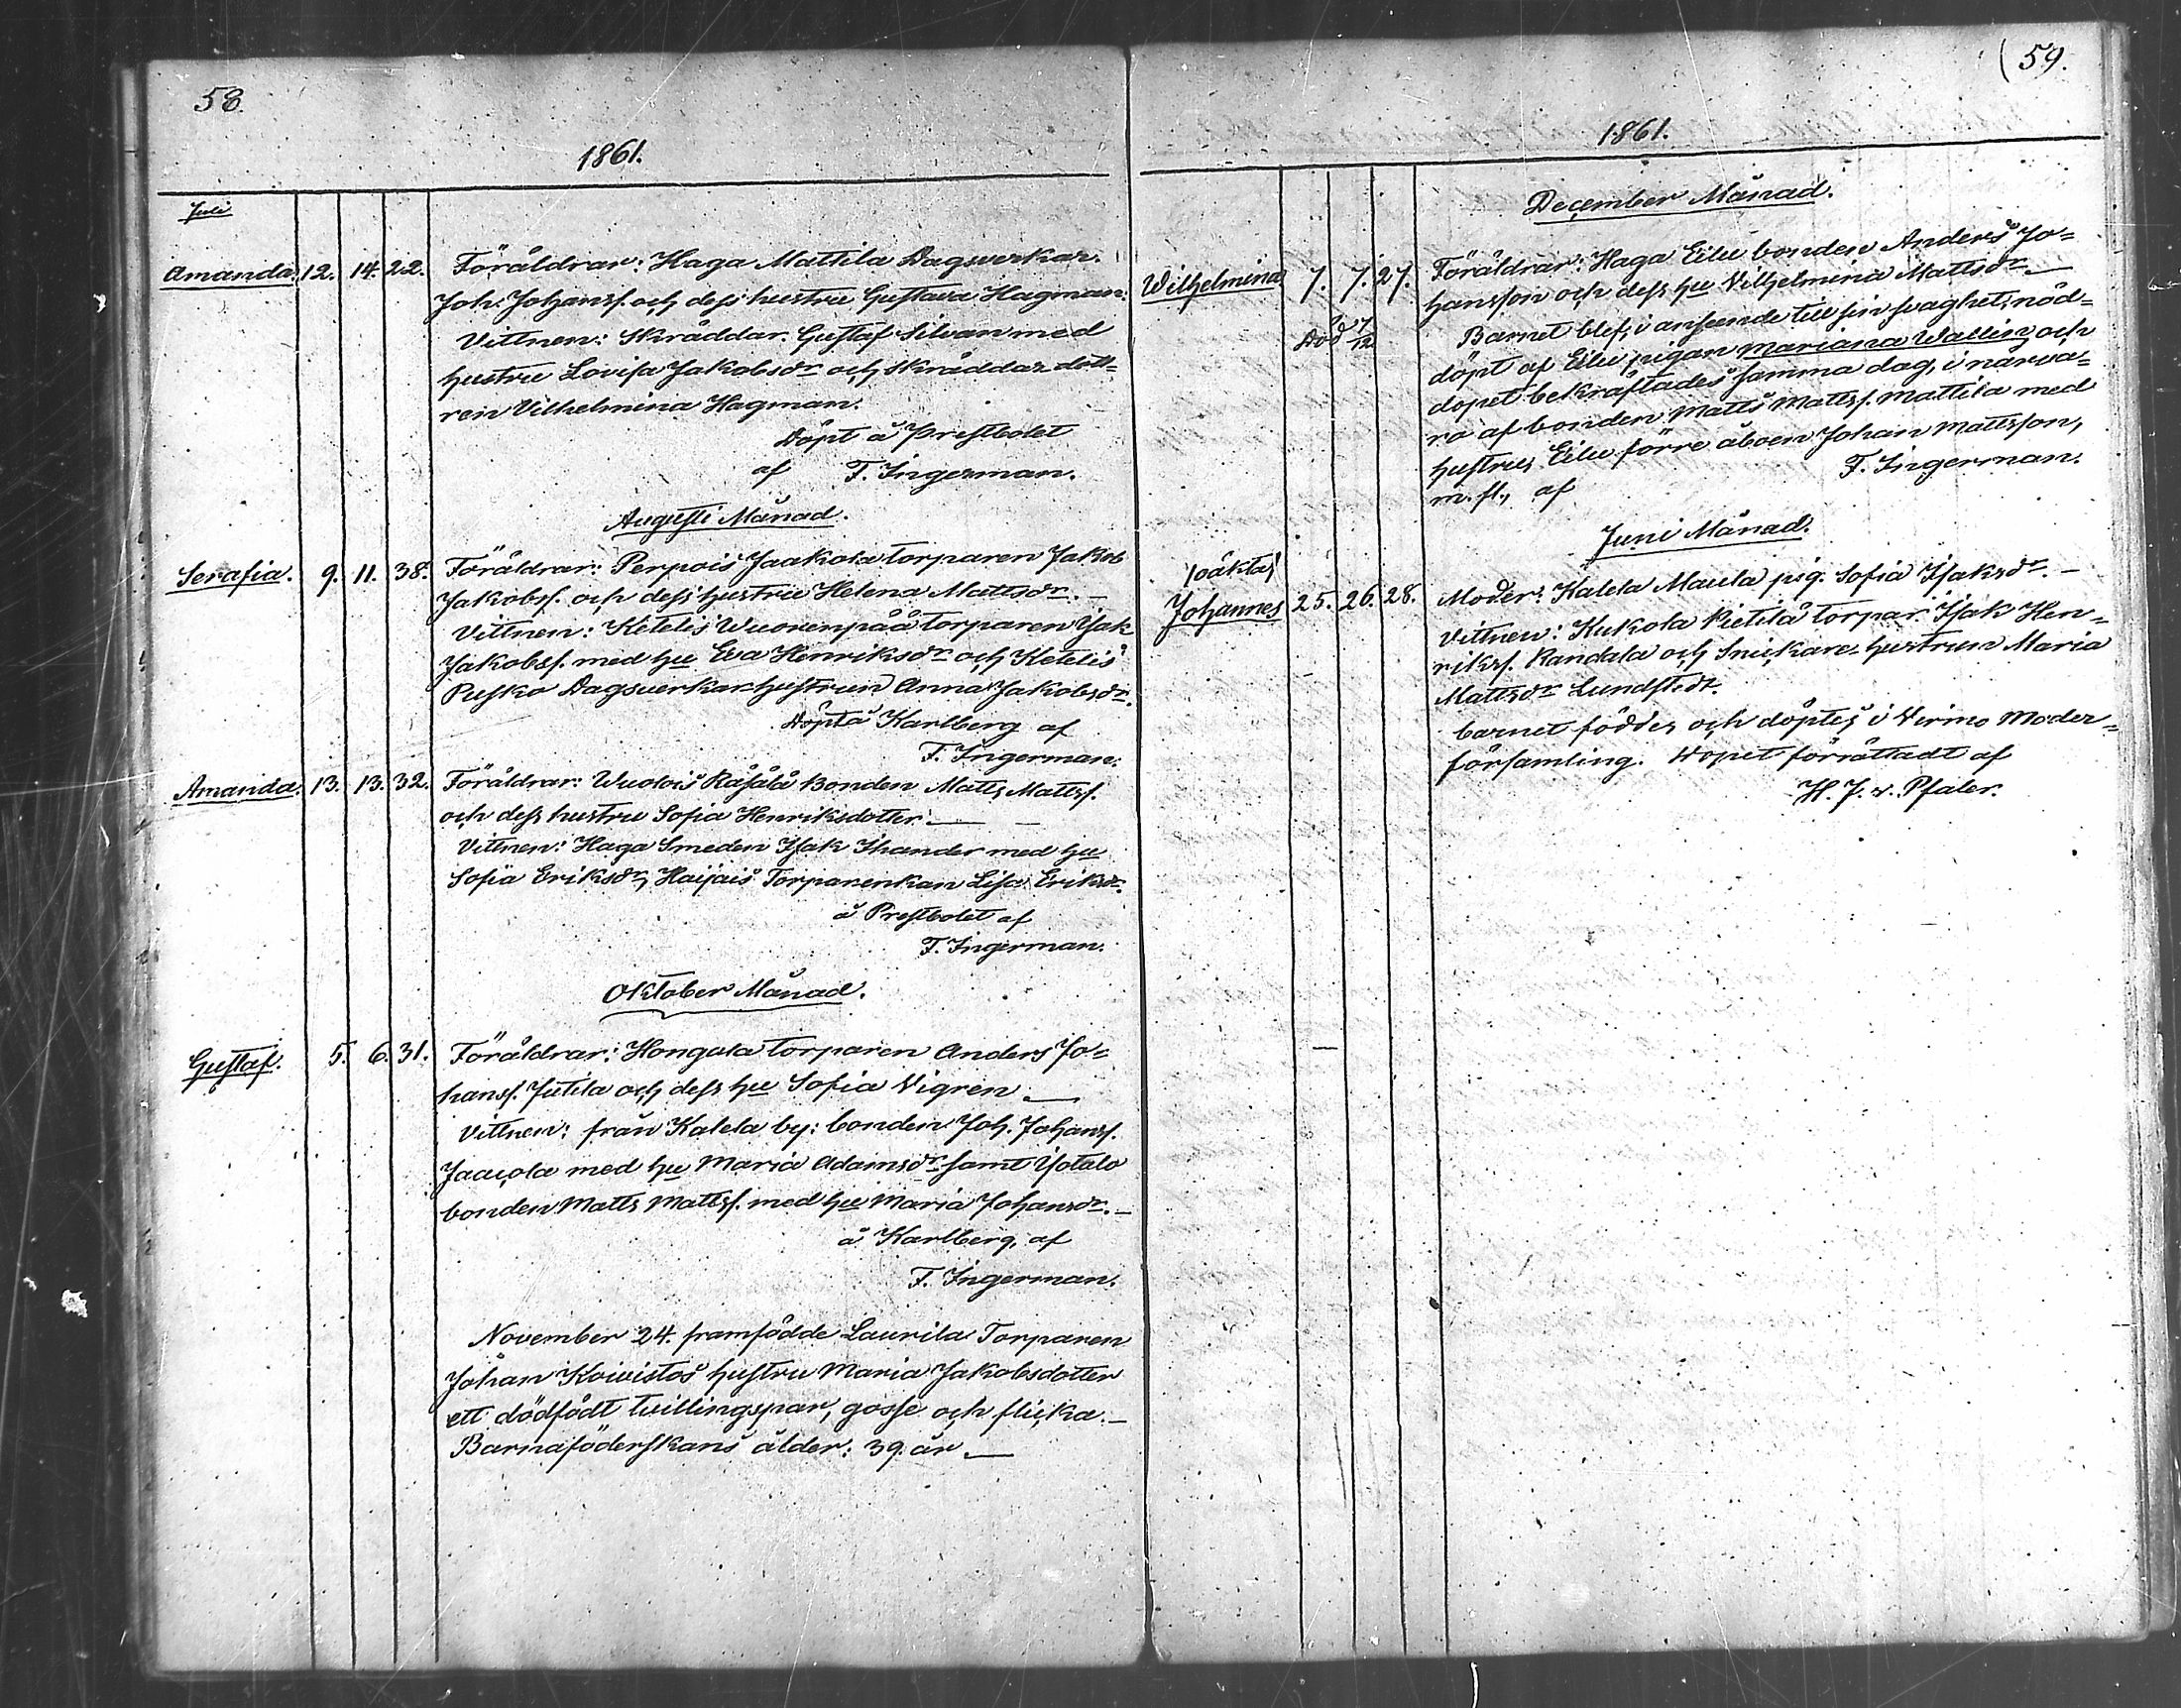 58.
1861.
Juli
Amanda. 12. 14. 22. Föräldrar: Haga Mattila Dagsverkar.
Joh. Johanss. och dess hustru Gustava Hagman.
Vittnen: Skräddar. Gustaf Silvan med
hustru Lovisa Jakobsdr och skräddar dott=
ren Vilhelmina Hagman.
Döpt å Prestbolet
af F. Ingerman.
Augusti Månad.
Serafia. 9. 11. 38. Föräldrar: Perpois Jaakola torparen Jakob
Jakobss. och dess hustru Helena Mattsdr. –
Vittnen: Ketelis Wuorenpää torparen Isak
Jakobss. med hu Eva Henriksdr och Ketelis
Pusko Dagsverkar-hustrun Anna Jakobsdr.
Döpt å Karlberg af
F. Ingerman.
Amanda. 13. 13. 32. Föräldrar: Wuolois Räsälä Bonden Matts Mattss.
och dess hustru Sofia Henriksdotter. —
Vittnen: Haga Smeden Isak Ihander med hu
Sofia Eriksdr, Haijais Torparenkan Lisa Eriksdr.
å Prestbolet af
F. Ingerman.
Oktober Månad.
Gustaf. 5. 6. 31. Föräldrar: Hongola torparen Anders Jo=
hanss. Jutila och dess hu Sofia Vigren —
Vittnen: från Kalela by: bonden Joh. Johanss.
Jaacola med hu Maria Adamsdr samt Isotalo
bonden Matts Mattss. med hu Maria Johansdr. –
å Karlberg, af
F. Ingerman.
November 24. framfödde Laurila Torparen
Johan Koivistos hustru Maria Jakobsdotter
ett dödfödt tvillingspar, gosse och flicka. –
Barnaföderskans ålder: 39. år. —
(59.
1861.
December Månad.
Wilhelmina 7. 7. 27. Föräldrar: Haga Eilu bonden Anders Jo=
hansson och dess hu Vilhelmina Mattsdr. —
Död 7/12 Barnet blef, i anseende till sin svaghet, nöd=
döpt af Eilu pigan Mariana Wallin och
dopet bekräftades samma dag, i närva=
ro af bonden Matts Mattss. Mattila med
hustru, Eilu förre åboen Johan Mattsson,
m. fl., af F. Ingerman.
Juni Månad.
/oäkta/
Johannes 25. 26. 28. Moder: Kalela Maula pig. Sofia Isaksdr. –
Vittnen: Kukola Pietilä torpar. Isak Hen=
rikss. Randala och Snickare-hustrun Maria
Mattsdr Lundstedt.
barnet föddes och döptes i Virmo Moder=
församling. Dopet förrättadt af
H. J. v. Pfaler.